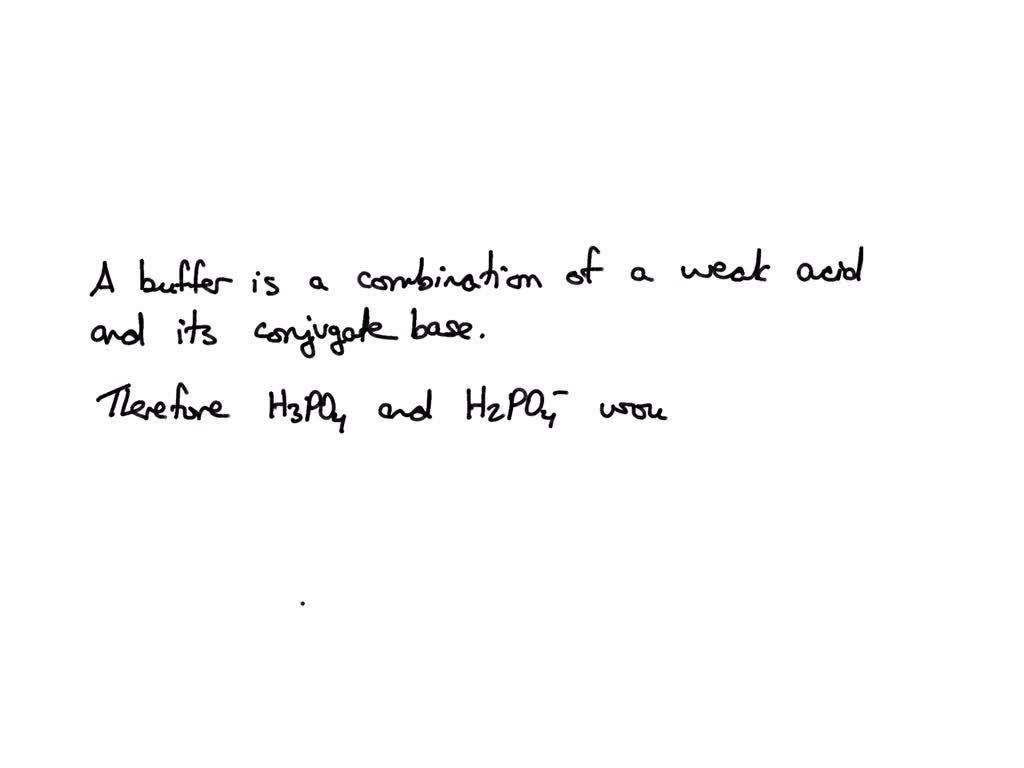 A buffer is a combination of a weak acid
and its conjugate base.
Therefore H3PO4 and H2PO4⁻ wou